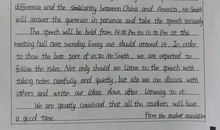 difference and the similarity between China and America. Mr. Smith
will answer the question in patience and take the speech seriously.
The speech will be held from 14:00 Pm to 16:00 Pm at the
meeting hall next monday. Every one should attend it. In order
to show the best part of us to Mr. Smith, we are expected to
follow the rules. Not only should we listen to the speech with
taking notes carefully and quietly, but also we can discuss with
others and write our ideas down after listening to it.
We are greatly convinced that all the students will have
a good time.
From the student association